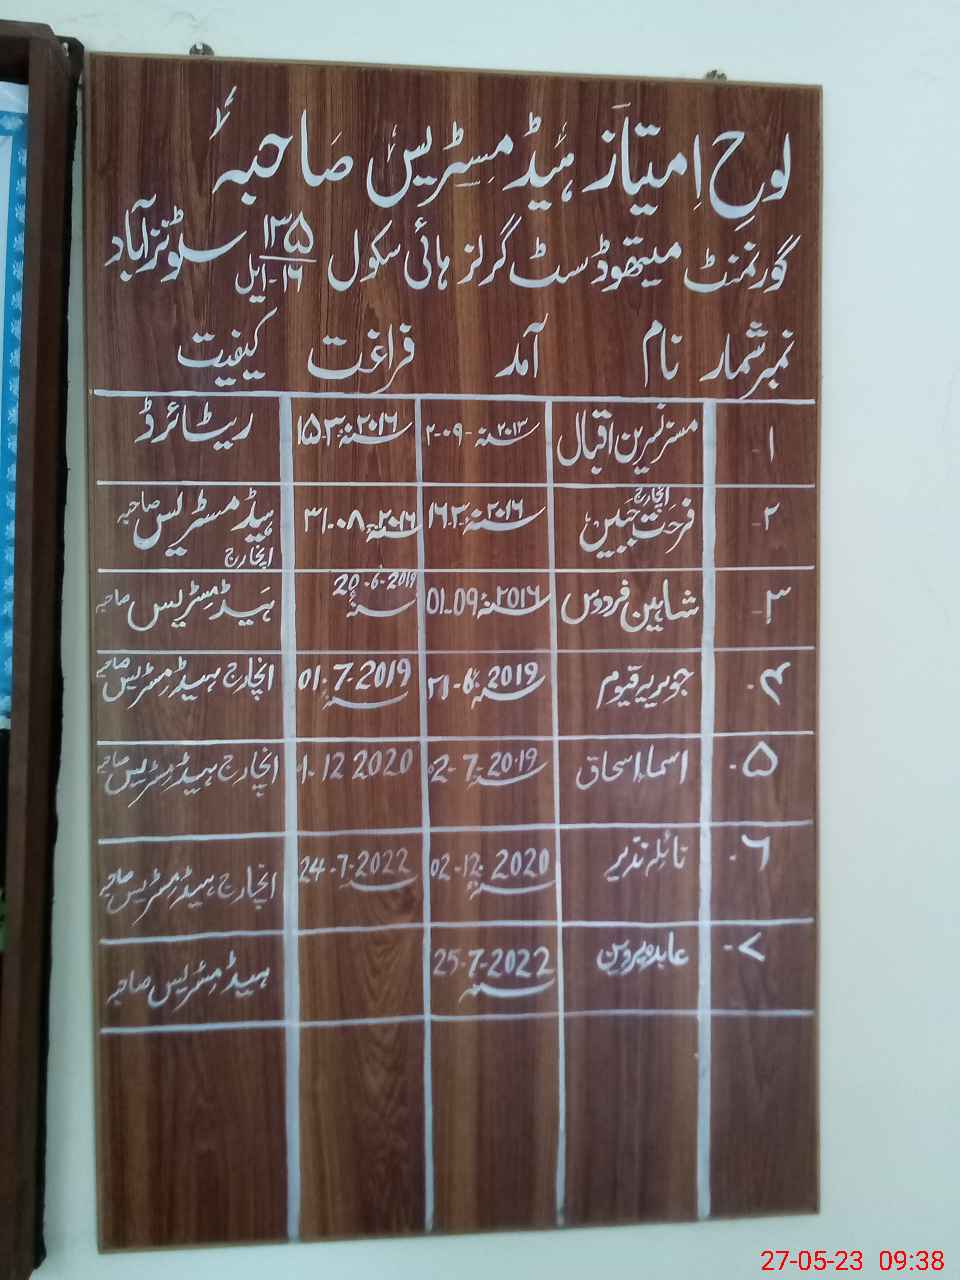 لوحِ اِمتیاز ہیڈ مسٹریس صاحبہ
گورنمنٹ میتھوڈسٹ گرلز ہائی سکول ۱۳۵/۱۶-ایل سٹونزآباد
نمبر شمار نام آمد فراغت کیفیت
۱- مسز نسرین اقبال ۲-۰۹-۲۰۱۳ ۱۵-۳-۲۰۱۶ ریٹائرڈ
۲- فرحت جبیں انچارج ۱۶-۳-۲۰۱۶ ۳۱-۰۸-۲۰۱۶ ہیڈ مسٹریس صاحبہ انچارج
۳- شاہین فردوس 01-09-۲۰۱۶ 20-6-2019 ہیڈ مسٹریس صاحبہ
۴- جویریہ قیوم 21-6-2019 01-7-2019 انچارج ہیڈ مسٹریس صاحبہ
۵- اسماء اسحاق 02-7-2019 1-12 2020 انچارج ہیڈ مسٹریس صاحبہ
۶- نائلہ نذیر 02-12-2020 24-7-2022 انچارج ہیڈ مسٹریس صاحبہ
۷- عابدہ پروین 25-7-2022 ہیڈ مسٹریس صاحبہ
27-05-23 09:38